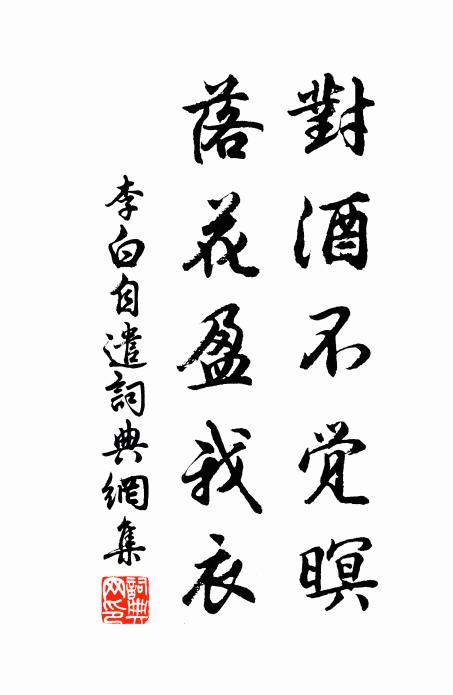 對酒不觉暝
落花盈我衣
李白自遣詞典網集
詞典網印